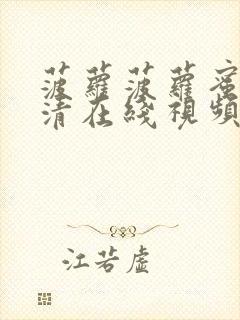 菠蘿菠蘿蜜
清在綫視頻
江若虛